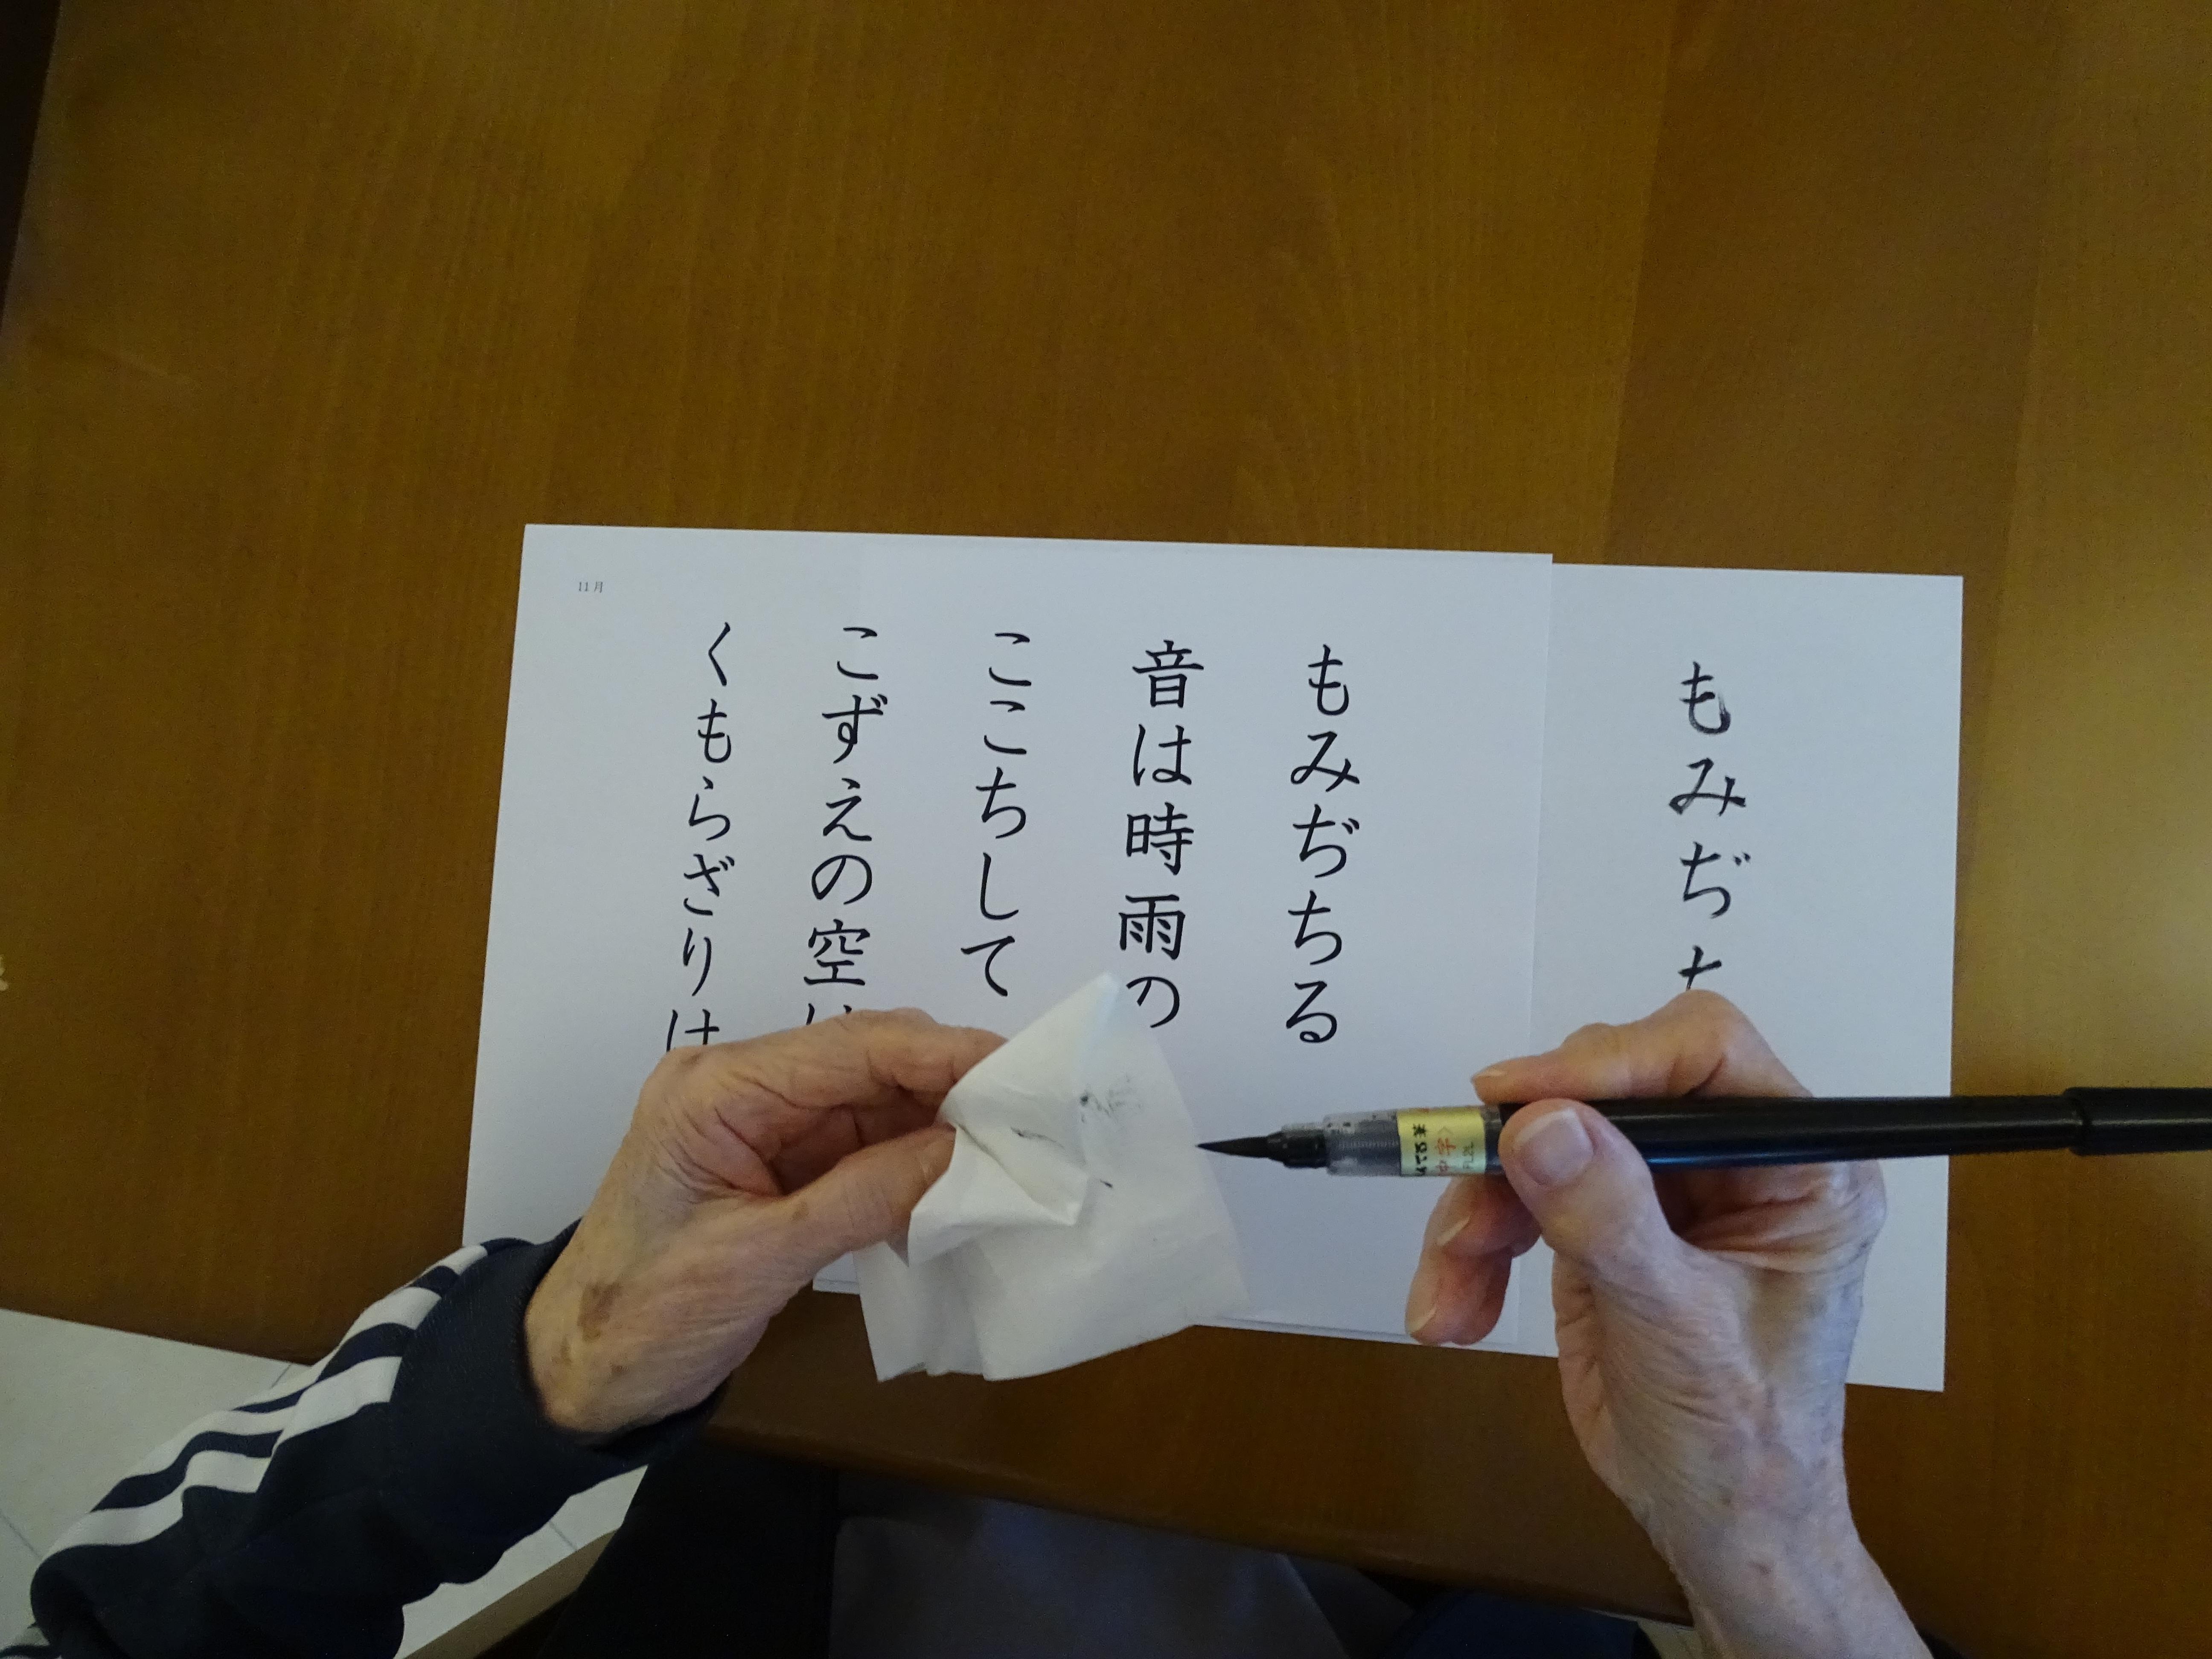 もみぢち
もみぢちる
音は時雨の
ここちして
こずえの空は
くもらざりけ
11月
中字